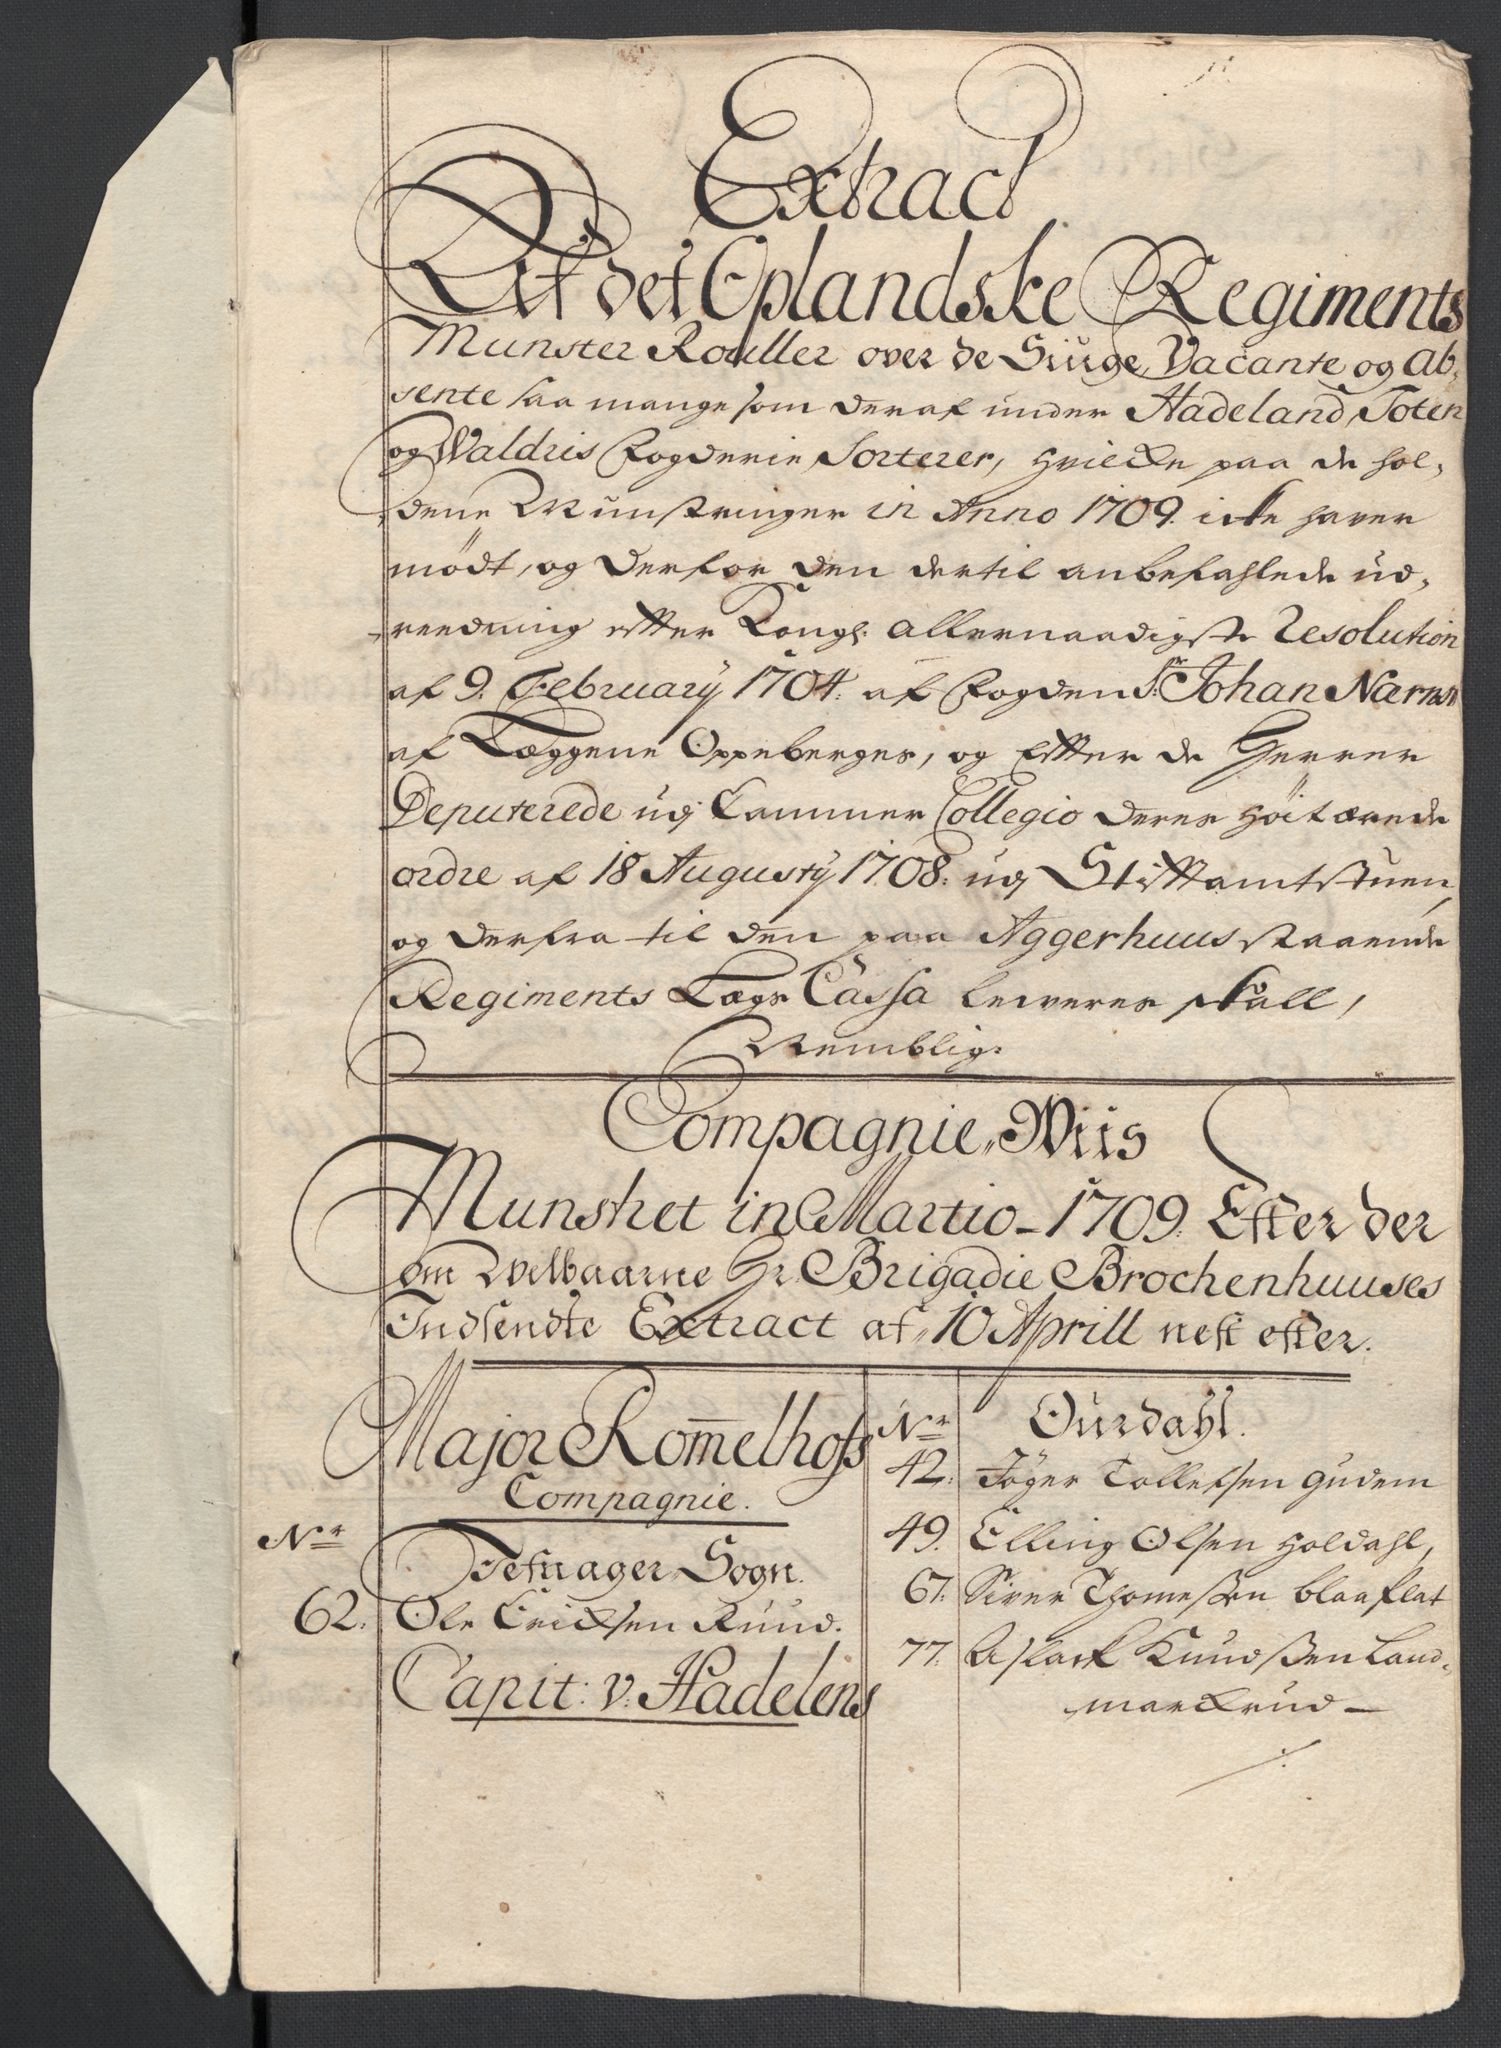 Extract
Af det Oplandske Regiments
Munster Rouller over de Siuge, Vacante og Ab-
sente saa mange som deraf under Hadeland, Toten
og Waldris Fogderie Sorterer, hvilcke paa de hol-
dene Munstringer in Anno 1709. icke haver
mødt, og derfor den dertil anbefahlede ud-
reedning efter Kongl: allernaadigste Resolution
af 9. February 1704. af Fogden Sr. Johan Nærnsn
af Læggene Oppeberges, og Efter de Herrer
Deputerede udj Cammer Collegio deres høitærede
ordre af 18 Augusty 1708. udj Stiftamtstuen,
og derfra til den paa Aggerhuus staaende
Regiments Lægs Cassa leiveres skall,
Nemblig:
Compagnie Wiis
Munstret in Martio 1709. Efter der
om Welbaarne Hr. Brigadie Brochenhuuses
Indsendte Extract af 10 Aprill nest efter.
Major Rommelhofs
Compagnie.
Nr.
Tefnager Sogn.
62. Ole Ericksen Ruud.
Capit: v: Hadelens
Nr. Ourdahl.
42. Jøger Tollefsen Gudem
49. Elling Olsen Holdahl,
67. Siver Thomesen blaaflat
77. Aslack Knudsen Land-
marckrud